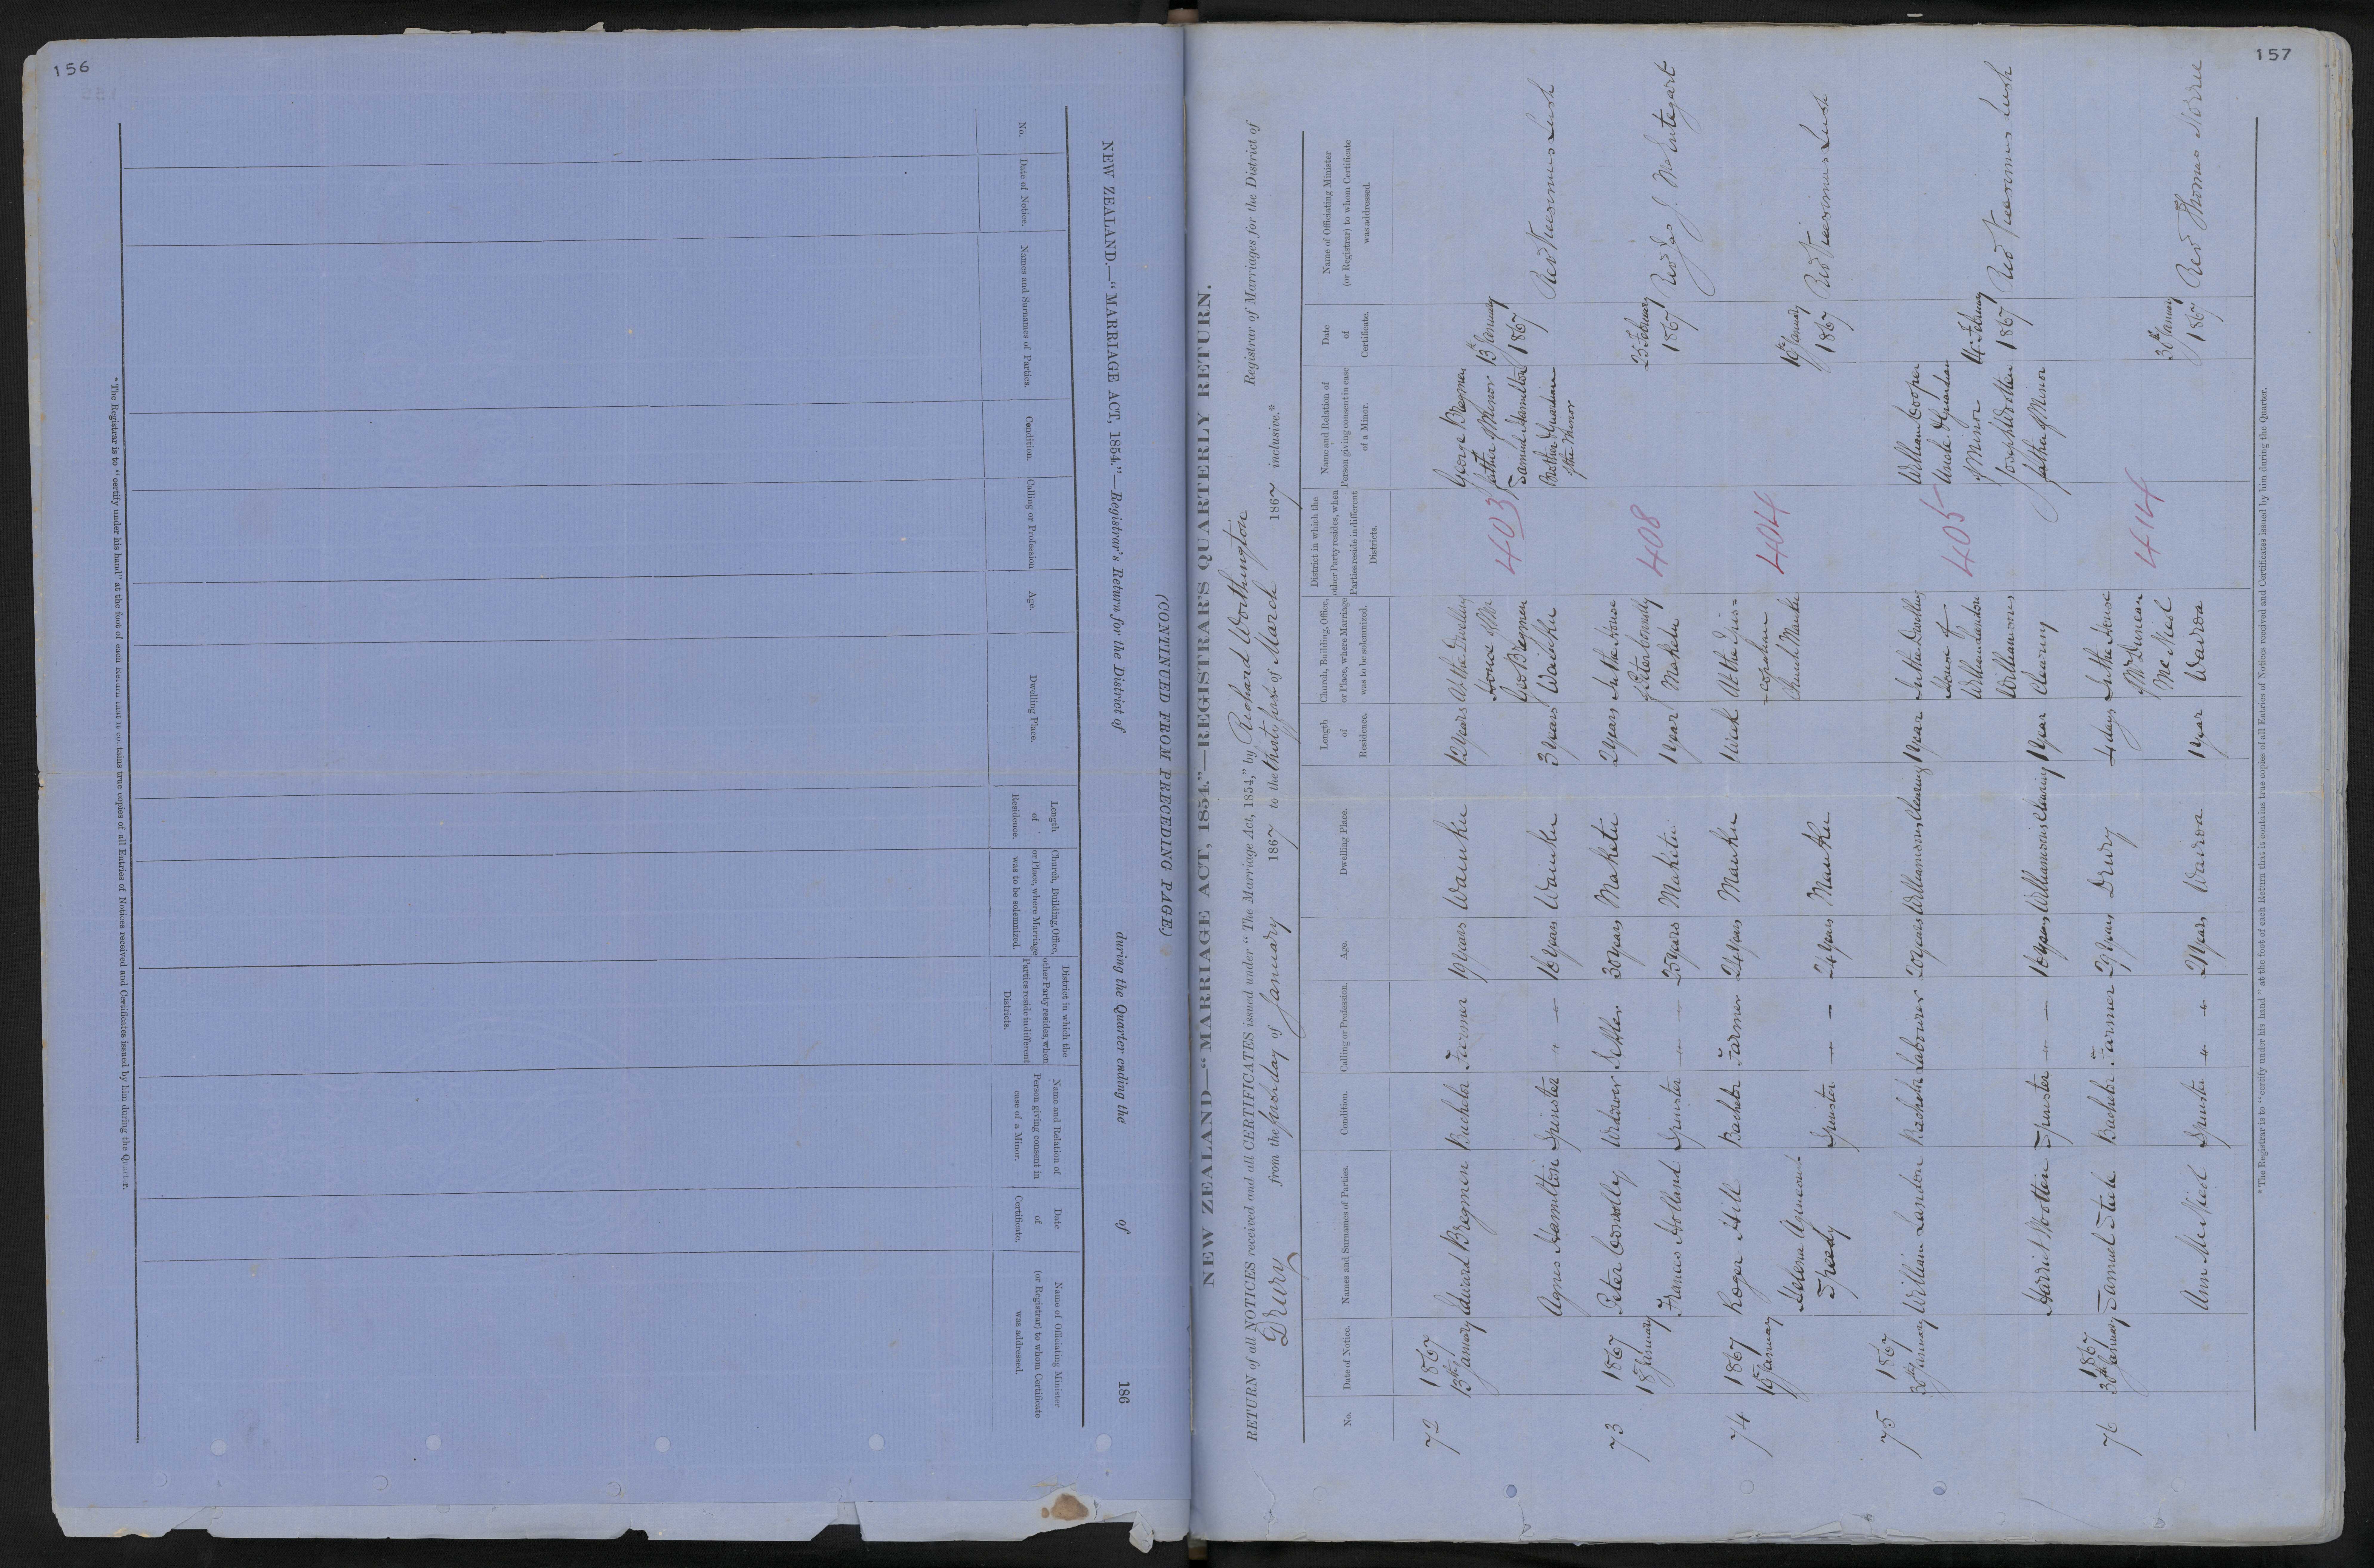 156
NEW ZEALAND.—"MARRIAGE ACT, 1854."—Registrar's Return for the District of during the Quarter ending the of 186
(CONTINUED FROM PRECEDING PAGE.)
No.
Date of Notice.
Names and Surnames of Parties.
Condition.
Calling or Profession
Age.
Dwelling Place.
Length
of
Residence.
Church, Building, Office,
or Place, where Marriage
was to be solemnized.
District in which the
other Party resides, when
Parties reside in different
Districts.
Name and Relation of
Person giving consent in
case of a Minor.
Date
of
Certificate.
Name of Officiating Minister
(or Registrar) to whom Certificate
was addressed.
*The Registrar is to "certify under his hand" at the foot of each Return that it contains true copies of all Entries of Notices received and Certificates issued by him during the Quarter.
157
NEW ZEALAND—"MARRIAGE ACT, 1854."—REGISTRAR'S QUARTERLY RETURN.
RETURN of all NOTICES received and all CERTIFICATES issued under "The Marriage Act, 1854," by Richard Worthington Registrar of Marriages for the District of
Drury from the first day of January 1867 to the thirty first of March 1867 inclusive.*
No.
Date of Notice.
Names and Surnames of Parties.
Condition.
Calling or Profession.
Age.
Dwelling Place.
Length
of
Residence.
Church, Building, Office,
or Place, where Marriage
was to be solemnized.
District in which the
other Party resides, when
Parties reside in different
Districts.
Name and Relation of
Person giving consent in case
of a Minor.
Date
of
Certificate.
Name of Officiating Minister
(or Registrar) to whom Certificate
was addressed.
72
1867
13th January
Edward Bregmen Bachelor Farmer 19 years Waiuku 12 years
At the Dwelling
House of Mr
Geo Bregmen
Waiuku
403
George Bregmen
father of Minor
Samuel Hamilton
Brother & Guardian
of the Minor
13th January
1867
Revd Vicesimus Lush
Agnes Hamilton Spinster " — 16 years Waiuku 3 years
73
1867
18th January
Peter Connolly Widower Settler 30 years Maketu 2 years
In the House
of Peter Connolly
Maketu
408
25 February
1867
Revd Jas J. McEntegart
Frances Holland Spinster — — 25 years Maketu 1 year
74
1867
15 January
Roger Hill Bachelor Farmer 24 years Mauku 1 Week
At the Epis=
=copalian
Church Mauku
404
16th January
1867
Revd Vicesimus Lush
Helena Agnes
Speedy Spinster — — 24 years Mauku
75
1867
30th January
William Landon Bachelor Labourer 20 years Williamsons Clearing 1 year
In the Dwelling
House of
William Landon
Williamsons
Clearing
405
William Cooper
Uncle & Guardian
of Minor
Joseph Wootten
father of Minor
14 February
1867
Revd Vicesimus Lush
Harriet Wootten Spinster — — 16 years Williamsons Clearing 1 year
76
1867
30th January
Samuel Steele Bachelor Farmer 29 years Drury 4 days
In the House
of Mr Duncan
McNiel
Wairoa
414
30th January
1867
Revd Thomas Norrie
Ann McNiel Spinster " " 21 years Wairoa 1 year
*The Registrar is to "certify under his hand" at the foot of each Return that it contains true copies of all Entries of Notices received and Certificates issued by him during the Quarter.